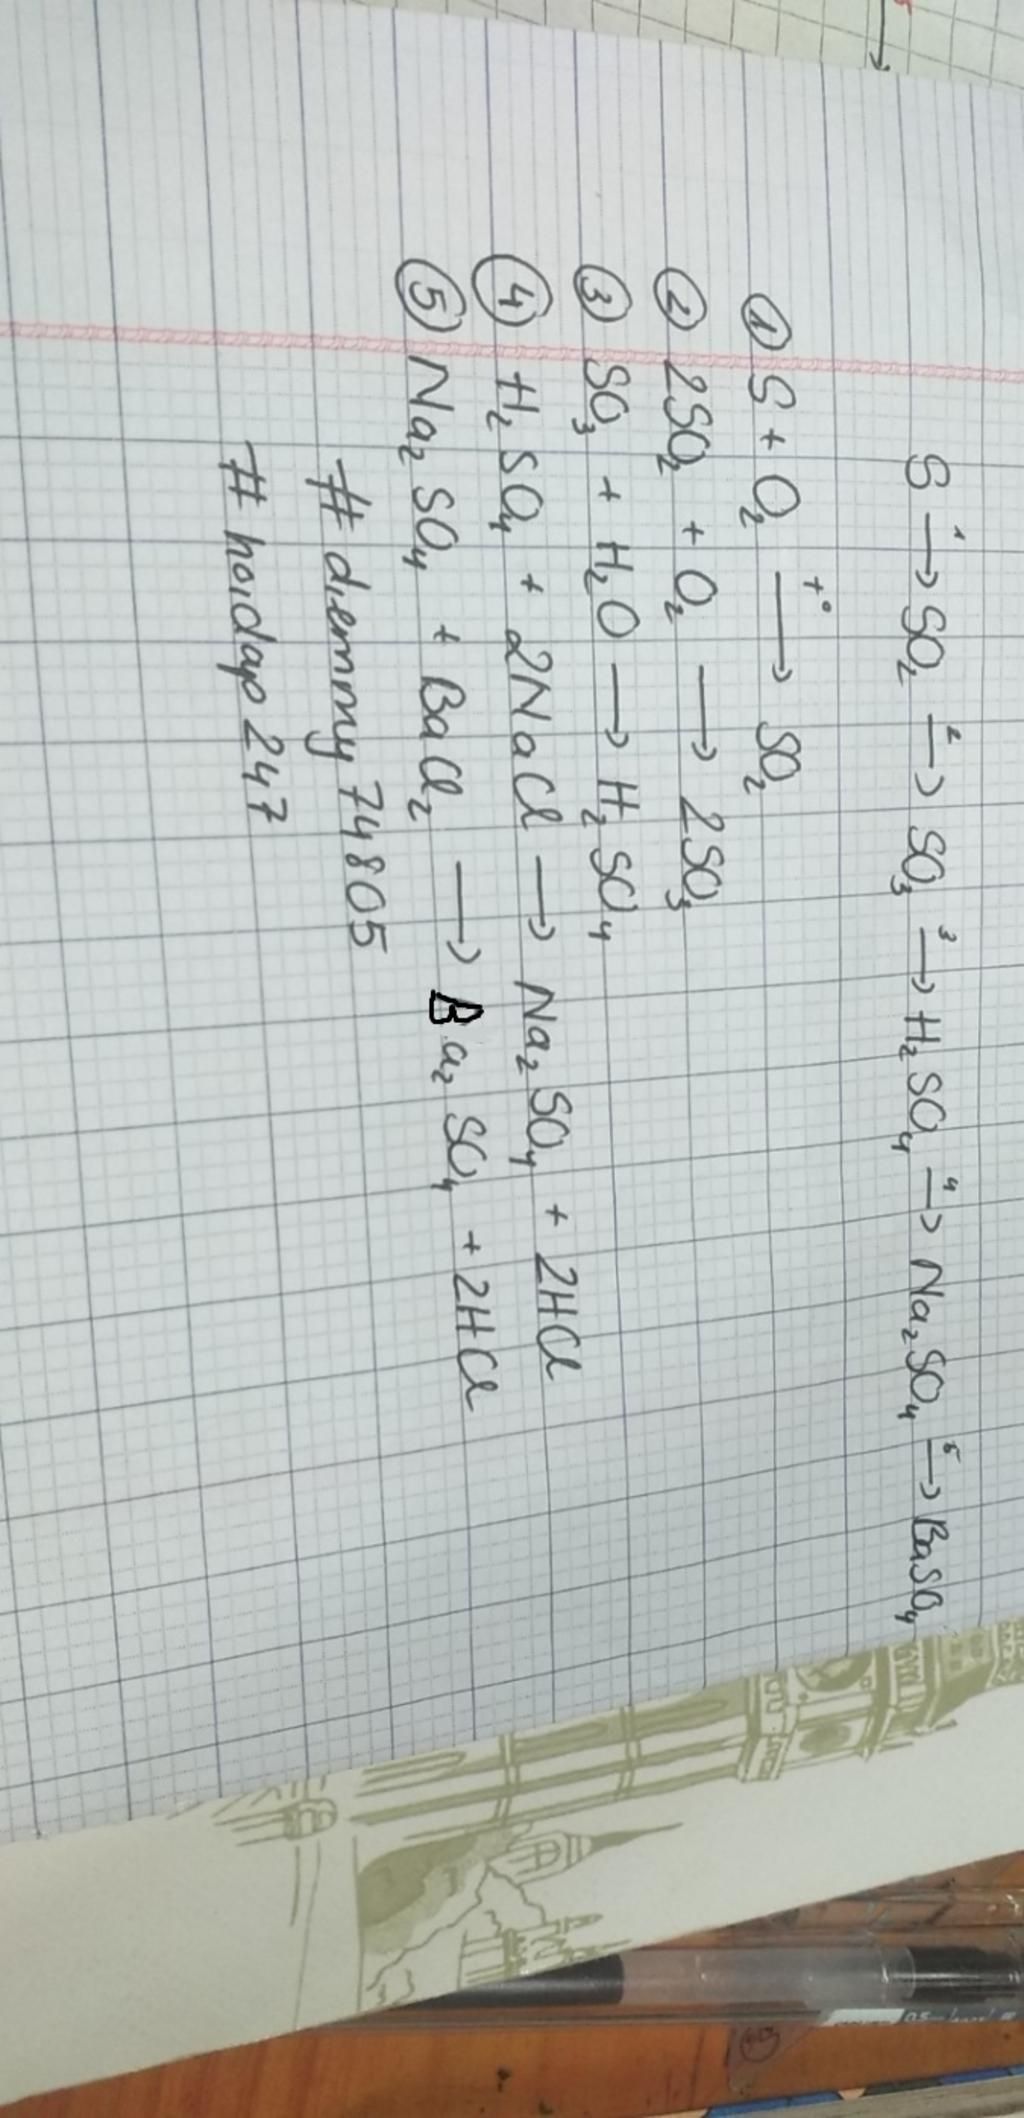 S →¹ SO₂ →² SO₃ →³ H₂SO₄ →⁴ Na₂SO₄ →⁵ BaSO₄
① S + O₂ →t° SO₂
② 2SO₂ + O₂ → 2SO₃
③ SO₃ + H₂O → H₂SO₄
④ H₂SO₄ + 2NaCl → Na₂SO₄ + 2HCl
⑤ Na₂SO₄ + BaCl₂ → Ba₂SO₄ + 2HCl
# diemmy74805
# hoidap247